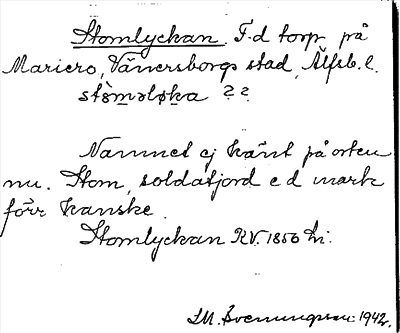 Stomlyckan. F.d torp på
Mariero, Vänersborgs stad, Älfsb. l.
stò̀məløka ? ?
Namnet ej känt på orten
nu. Stom, soldatjord e d mark
förr kanske.
Stomlyckan RV. 1850 tr.
I.M. Svenungsson 1942.